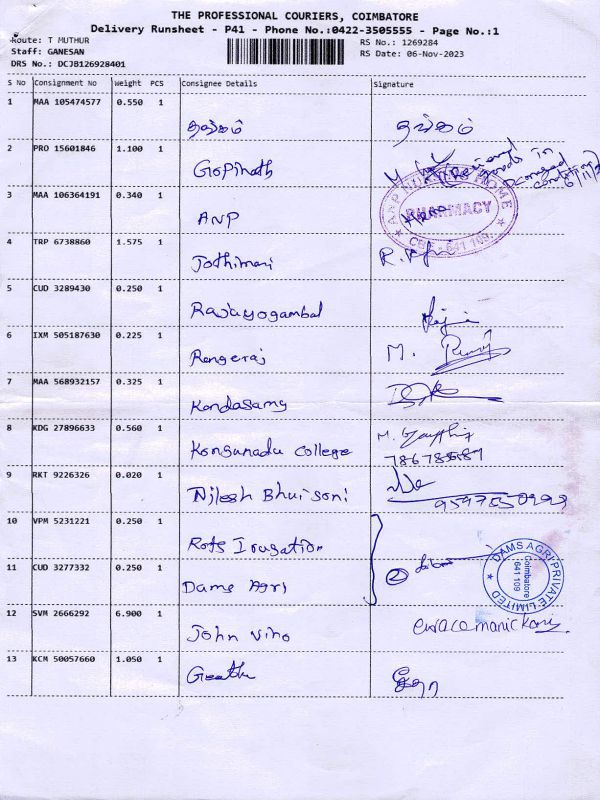 THE PROFESSIONAL COURIERS, COIMBATORE
Delivery Runsheet - P41 - Phone No.:0422-3505555 - Page No.:1
Route: T MUTHUR
RS No.: 1269284
Staff: GANESAN
RS Date: 06-Nov-2023
DRS No.: DCJB126928401
S No Consignment No Weight PCS Consignee Details Signature
1 MAA 105474577 0.550 1
தங்கம் தங்கம்
2 PRO 15601846 1.100 1
Gopinath
3 MAA 106364191 0.340 1
ANP
PHARMACY
CBE - 641 109
4 TRP 6738860 1.575 1
Jothimani R.
5 CUD 3289430 0.250 1
Rajayogambal
6 IXM 505187630 0.225 1
Rengeraj M.
7 MAA 568932157 0.325 1
Kondasamy
8 KDG 27896633 0.560 1
Kongunadu College M.
9 RKT 9226326 0.020 1
Nilesh Bhaisoni
10 VPM 5231221 0.250 1
Rots Irugation
11 CUD 3277332 0.250 1
Dams Agri 2
DAMS AGRI PRIVATE LIMITED
Coimbatore
641 109
12 SVM 2666292 6.900 1
John Vino
13 KCM 50057660 1.050 1
Geetha